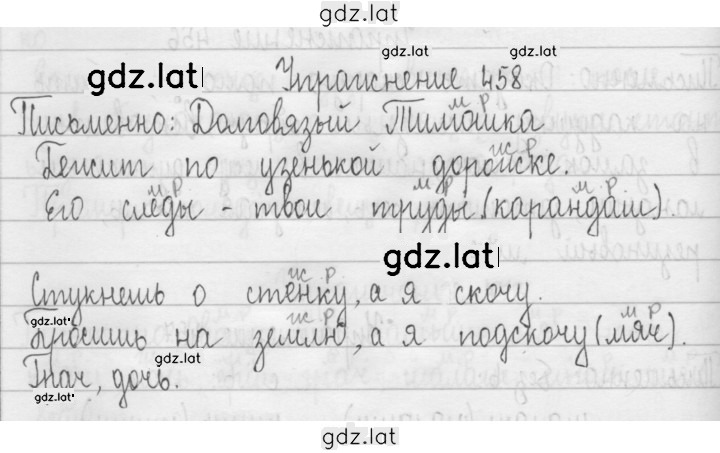 gdz.lat
gdz.lat
gdz.lat
Упражнение 458
м р
Письменно: Долговязый Тимошка
ж р
Бежит по узенькой дорожке.
м р м р м р
Его следы - твои труды (карандаш).
gdz.lat
ж р
Стукнешь о стенку, а я скочу.
gdz.lat ж р м р
Бросишь на землю, а я подскочу (мяч).
gdz.lat
Ткач, дочь.
gdz.lat
gdz.lat